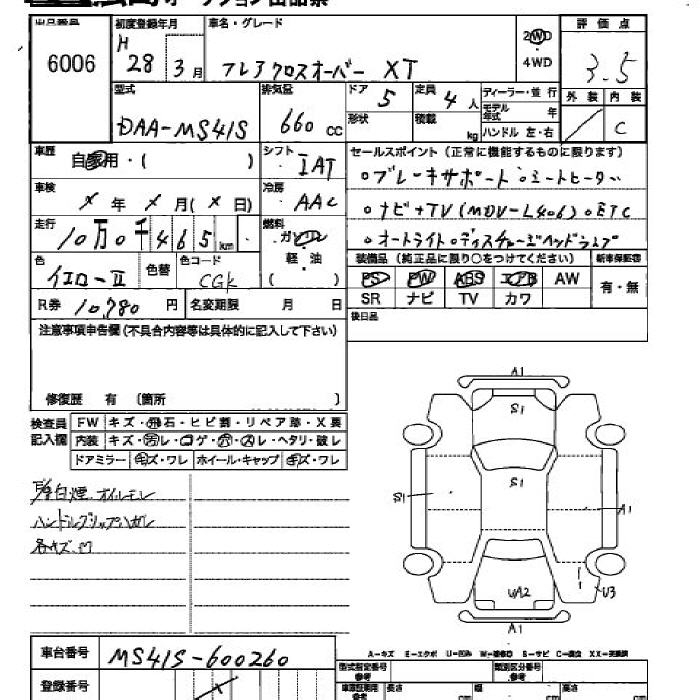 出品番号 初度登録年月 車名・グレード 評価点
6006 H 28 3月 フレアクロスオーバー XT 2WD ・ 4WD 3.5
型式 排気量 ドア 定員 ディーラー・並行 外装 内装
DAA-MS41S 660 cc 5 4人 モデル年式 年 C
形状 積載 kg ハンドル 左・右
車歴 自家用・( ) シフト IAT セールスポイント (正常に機能するものに限ります)
車検 X年 X月(X日) 冷房 AAC ○ブレーキサポート ○シートヒーター
走行 10万0千465km 燃料 ガソリン ○ナビ+TV(MDV-L406)○ETC
軽・油 ( ) ○オートライト○ディスチャージヘッドランプ
色 イエロー-II 色替 色コード CGK 装備品 (純正品に限り○をつけてください) 新車保証書
PS PW ABS エアB AW 有・無
R券 10,780 円 名変期限 月 日 SR ナビ TV カワ
注意事項申告欄(不具合内容等は具体的に記入して下さい) 後日品
修復歴 有 〔箇所 〕
検査員記入欄 FW キズ・飛石・ヒビ割・リペア跡・X要
内装 キズ・汚レ・コゲ・穴・スレ・ヘタリ・破レ
ドアミラー キズ・ワレ ホイール・キャップ キズ・ワレ
白煙.オイルモレ
ハンドルグリップハガレ
各キズ.凹
A1
S1
S1
S1
A1
UA2
U3
A1
A-キズ E-エクボ U-凹み W-補修跡 S-サビ C-腐食 XX-交換済
車台番号 MS41S-600260 型式指定番号 参考 類別区分番号 参考
登録番号 長さ cm 幅 cm 高さ cm